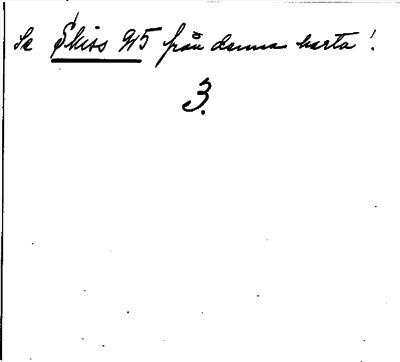 Se Skiss 25 från denna karta!
3.